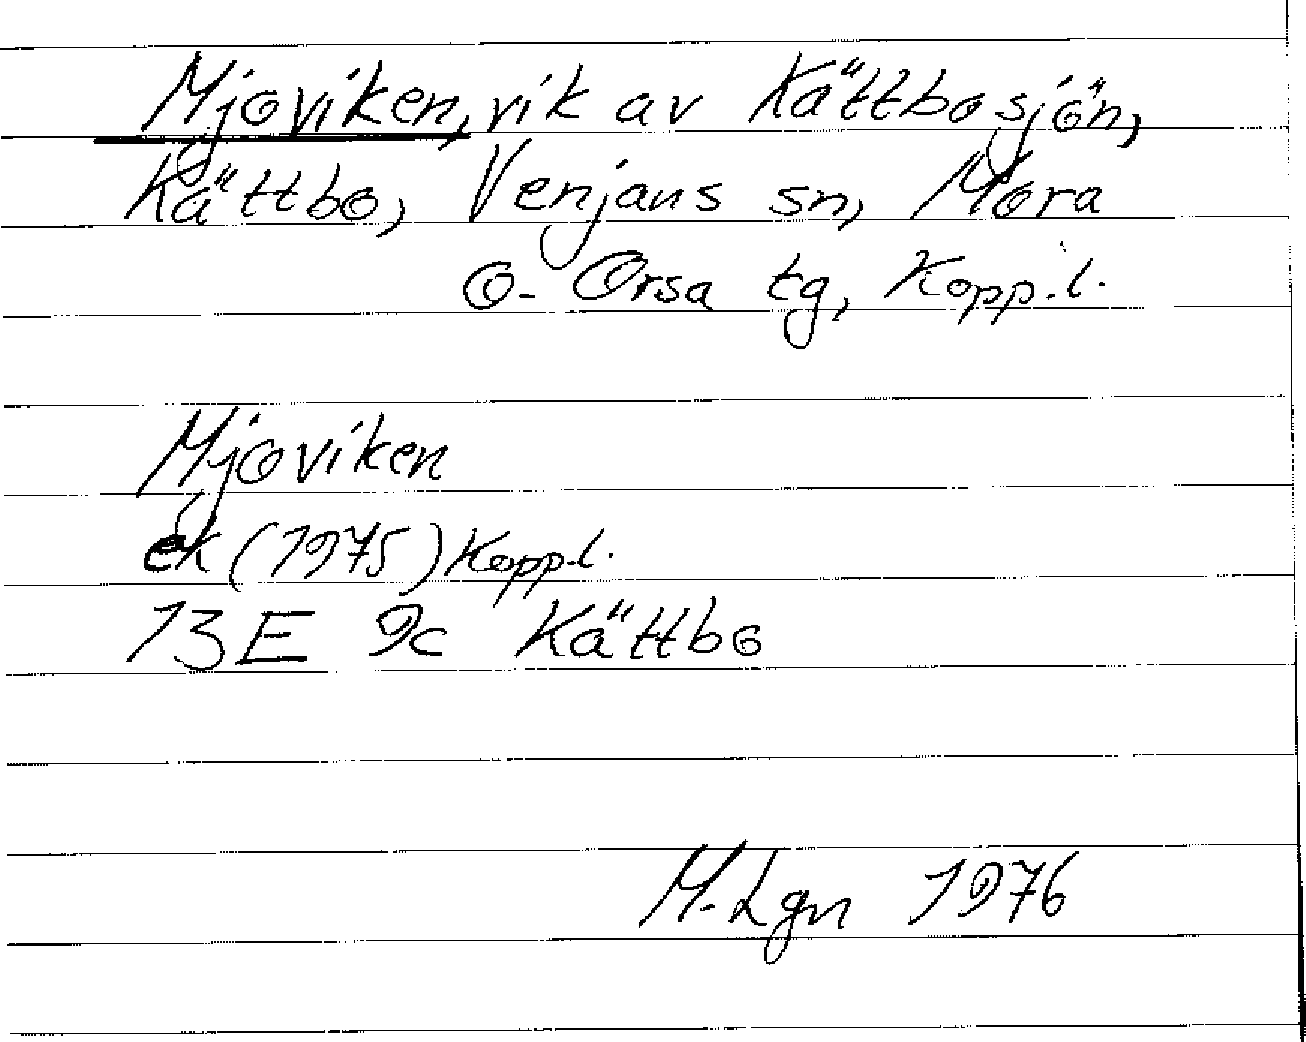 Mjoviken, vik av Kättbosjön,
Kättbo, Venjans sn, Mora
o. Orsa tg, Kopp.l.
Mjoviken
ek (1975) Kopp.l.
13E 9c Kättbo
M. Lgn 1976